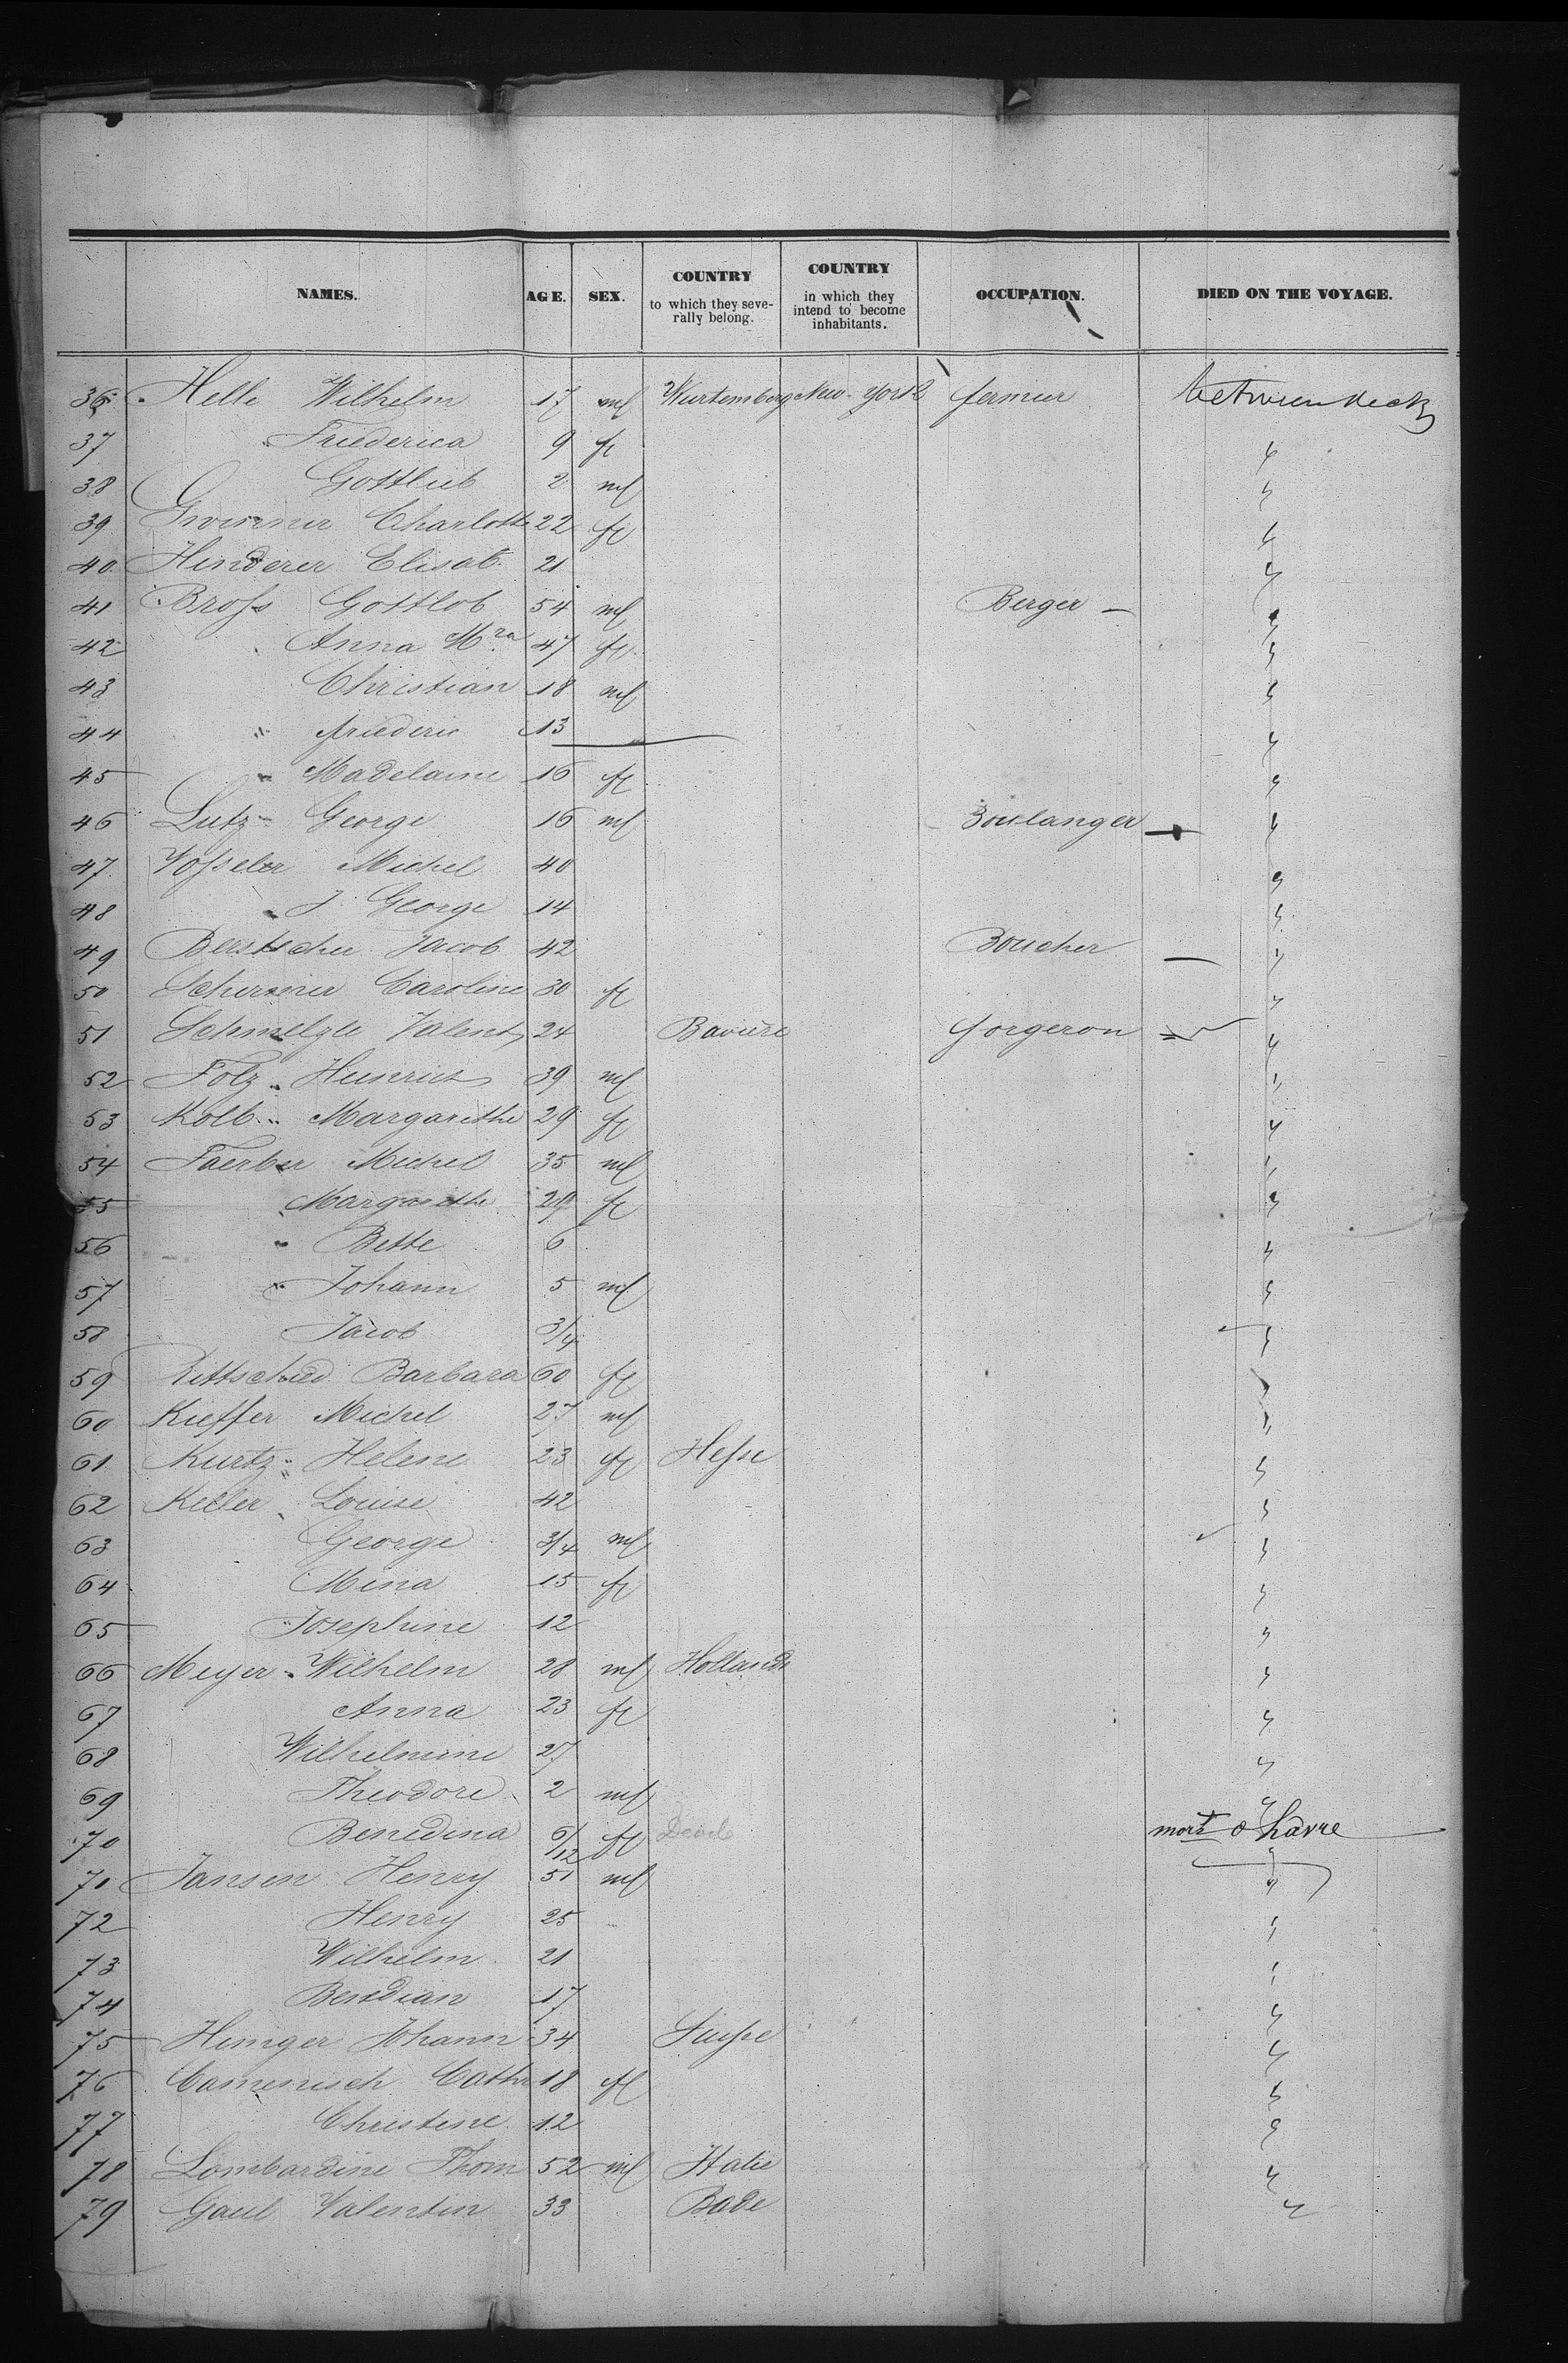 NAMES. AGE. SEX. COUNTRY to which they severally belong. COUNTRY in which they intend to become inhabitants. OCCUPATION. DIED ON THE VOYAGE.
36 Helle Wilhelm 17 m Wurtemberg New-York fermier between deck
37 Friederica 9 f "
38 Gottlieb 2 m "
39 Charlotte 22 f "
40 Hinderer Elisab. 21 "
41 Bross Gottlob 54 m Berger — "
42 " Anna Mria 47 f "
43 Christian 18 m "
44 " friederic 13 "
45 " Madelaine 16 f "
46 Lutz George 16 m Boulanger — "
47 Vosseler Michel 40 "
48 " J. George 14 "
49 Bertscher Jacob 42 Boucher — "
50 Caroline 30 f "
51 Schmelzle Valent 24 Baviere forgeron "
52 Folz Heinrich 39 m "
53 Kolb Margarethe 29 f "
54 Faerber Michel 35 m "
55 " Margarethe 29 f "
56 " Bette 6 "
57 " Johann 5 m "
58 Jacob 3/4 "
59 Barbara 60 f "
60 Kieffer Michel 27 m "
61 Kurtz Helene 23 f Hesse "
62 Keller Louise 42 "
63 George 3/4 m "
64 Mina 15 f "
65 " Josephine 12 "
66 Meyer Wilhelm 28 m Hollande "
67 Anna 23 f "
68 Wilhelmine 27 "
69 Theodore 2 m "
70 Benedina 6/12 f Dead mort o havre
71 Jansen Henry 51 m "
72 Henry 25 "
73 Wilhelm 21 "
74 Berdian 17 "
75 Johann 34 Suisse "
76 Camenisch Cathr 18 f "
77 Christine 12 "
78 Lombardine Thom 52 m Italie "
79 Gaul Valentin 33 Bade "